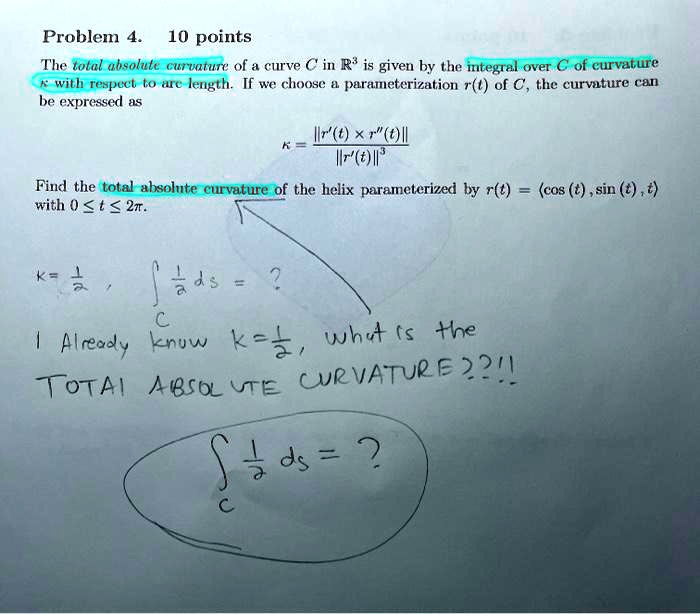 Problem 4. 10 points
The total absolute curvature of a curve C in R³ is given by the integral over C of curvature
κ with respect to arc length. If we choose a parameterization r(t) of C, the curvature can
be expressed as
κ = ||r'(t) × r''(t)|| / ||r'(t)||³
Find the total absolute curvature of the helix parameterized by r(t) = ⟨cos (t) , sin (t) , t⟩
with 0 ≤ t ≤ 2π.
K = 1/2 , ∫_C 1/2 ds = ?
I Already know k = 1/2, what is the
TOTAl ABSOLUTE CURVATURE ??!!
∫_C 1/2 ds = ?